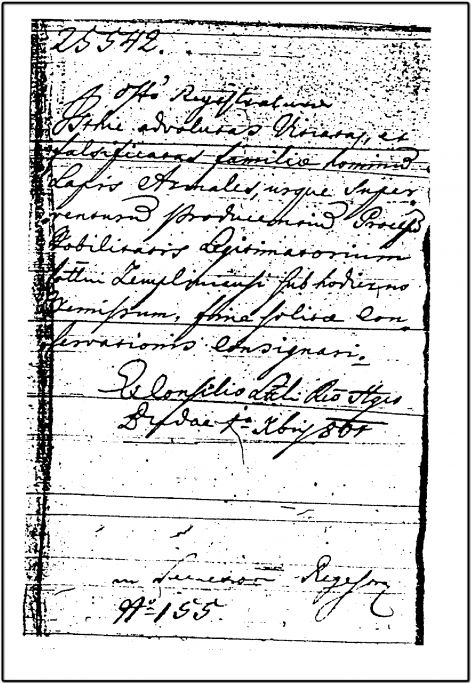 25542.
Offo Registraturae
Isthic advolutas Vitiatas, et
falsificatas familiae hominis
Lapis Armales, usque super
venturum producendum Process
Nobilitaris Legitimatorium
Cottui Zempliniensi sub hodierno
remissum, fine solitae Con
servationis consignari.
Ex Consilio Lttli Reo Hgco
Budae 1a Xbris 1801
in Regest
No 155.